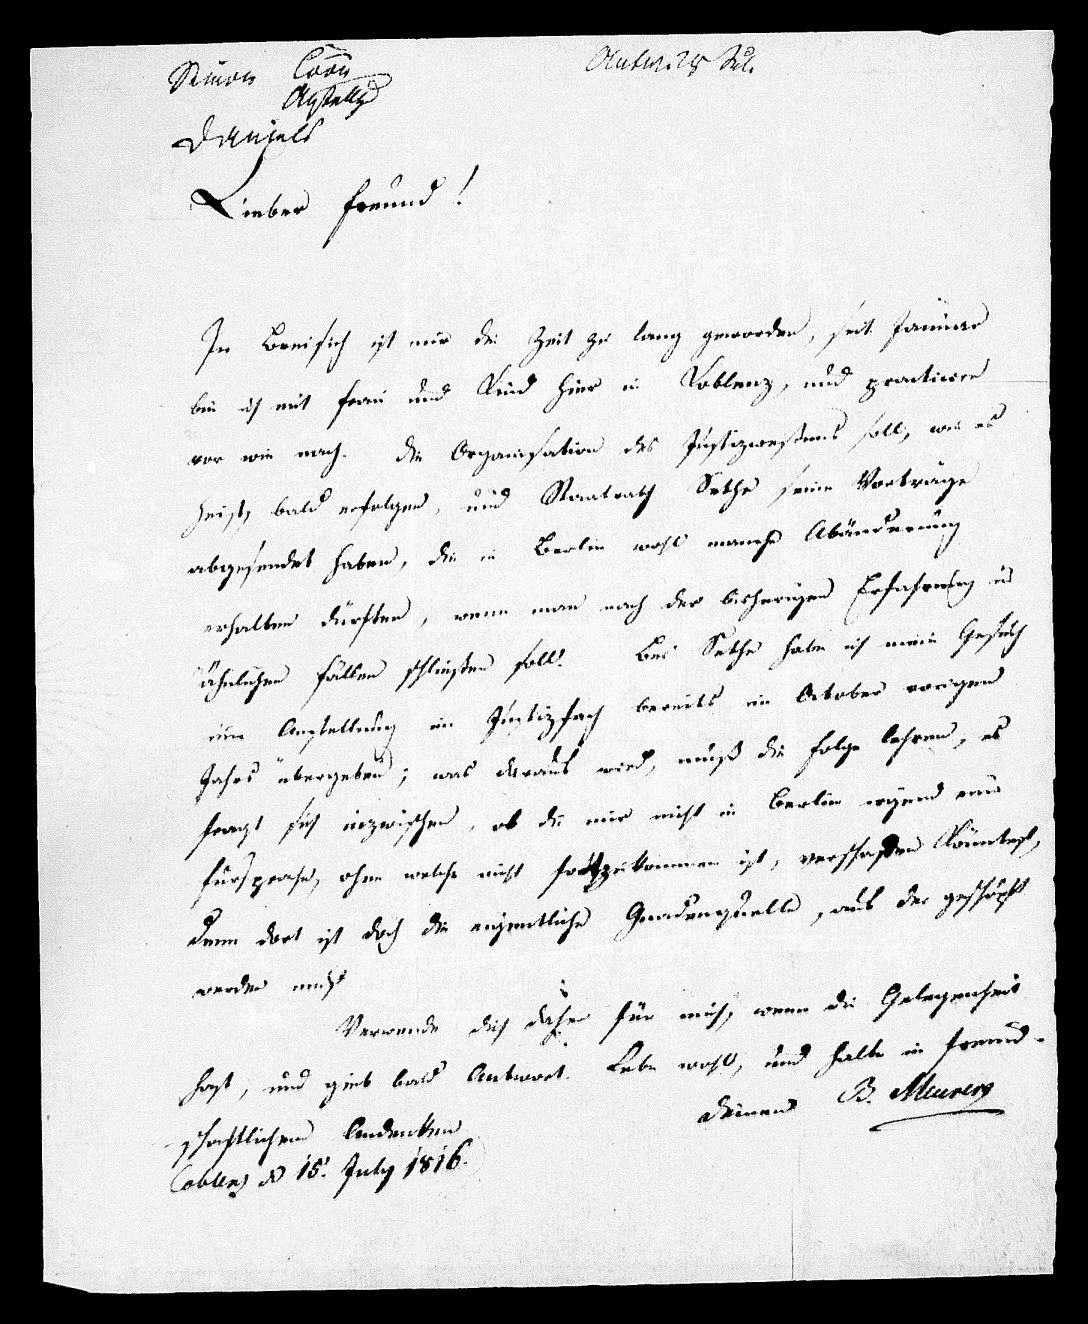 Simon
Daniels
Lieber Freund!
In Breisich ist mir die Zeit zu lang geworden, seit Januar
bin ich mit Frau und Kind hier in Koblenz, und practicire
vor wie nach. Die Organisation des Justizwesens soll, wie es
heist, bald erfolgen, und Staatrath Sethe seine Vorträge
abgesendet haben, die in Berlin wohl manche Abänderung
erhalten dürften, wenn man nach der bisherigen Erfahrung in
ähnlichen Fällen schließen soll. Bei Sethe habe ich mein Gesuch
um Anstellung im Justizfach bereits im October vorigen
Jahrs übergeben; was daraus wird, muß die Folge lehren, es
fragt sich inzwischen, ob du mir nicht in Berlin irgend eine
Fürsprache, ohne welche nicht fortzukommen ist, verschaffen könntest,
denn dort ist doch die eigentliche Gnadenquelle, aus der geschöpft
werden muß
Verwende dich daher für mich, wenn du Gelegenheit
hast, und gieb bald Antwort. Lebe wohl, und halte in freund-
schaftlichem Andenken
deinen B. Meurers
Coblenz d 15. July 1816.